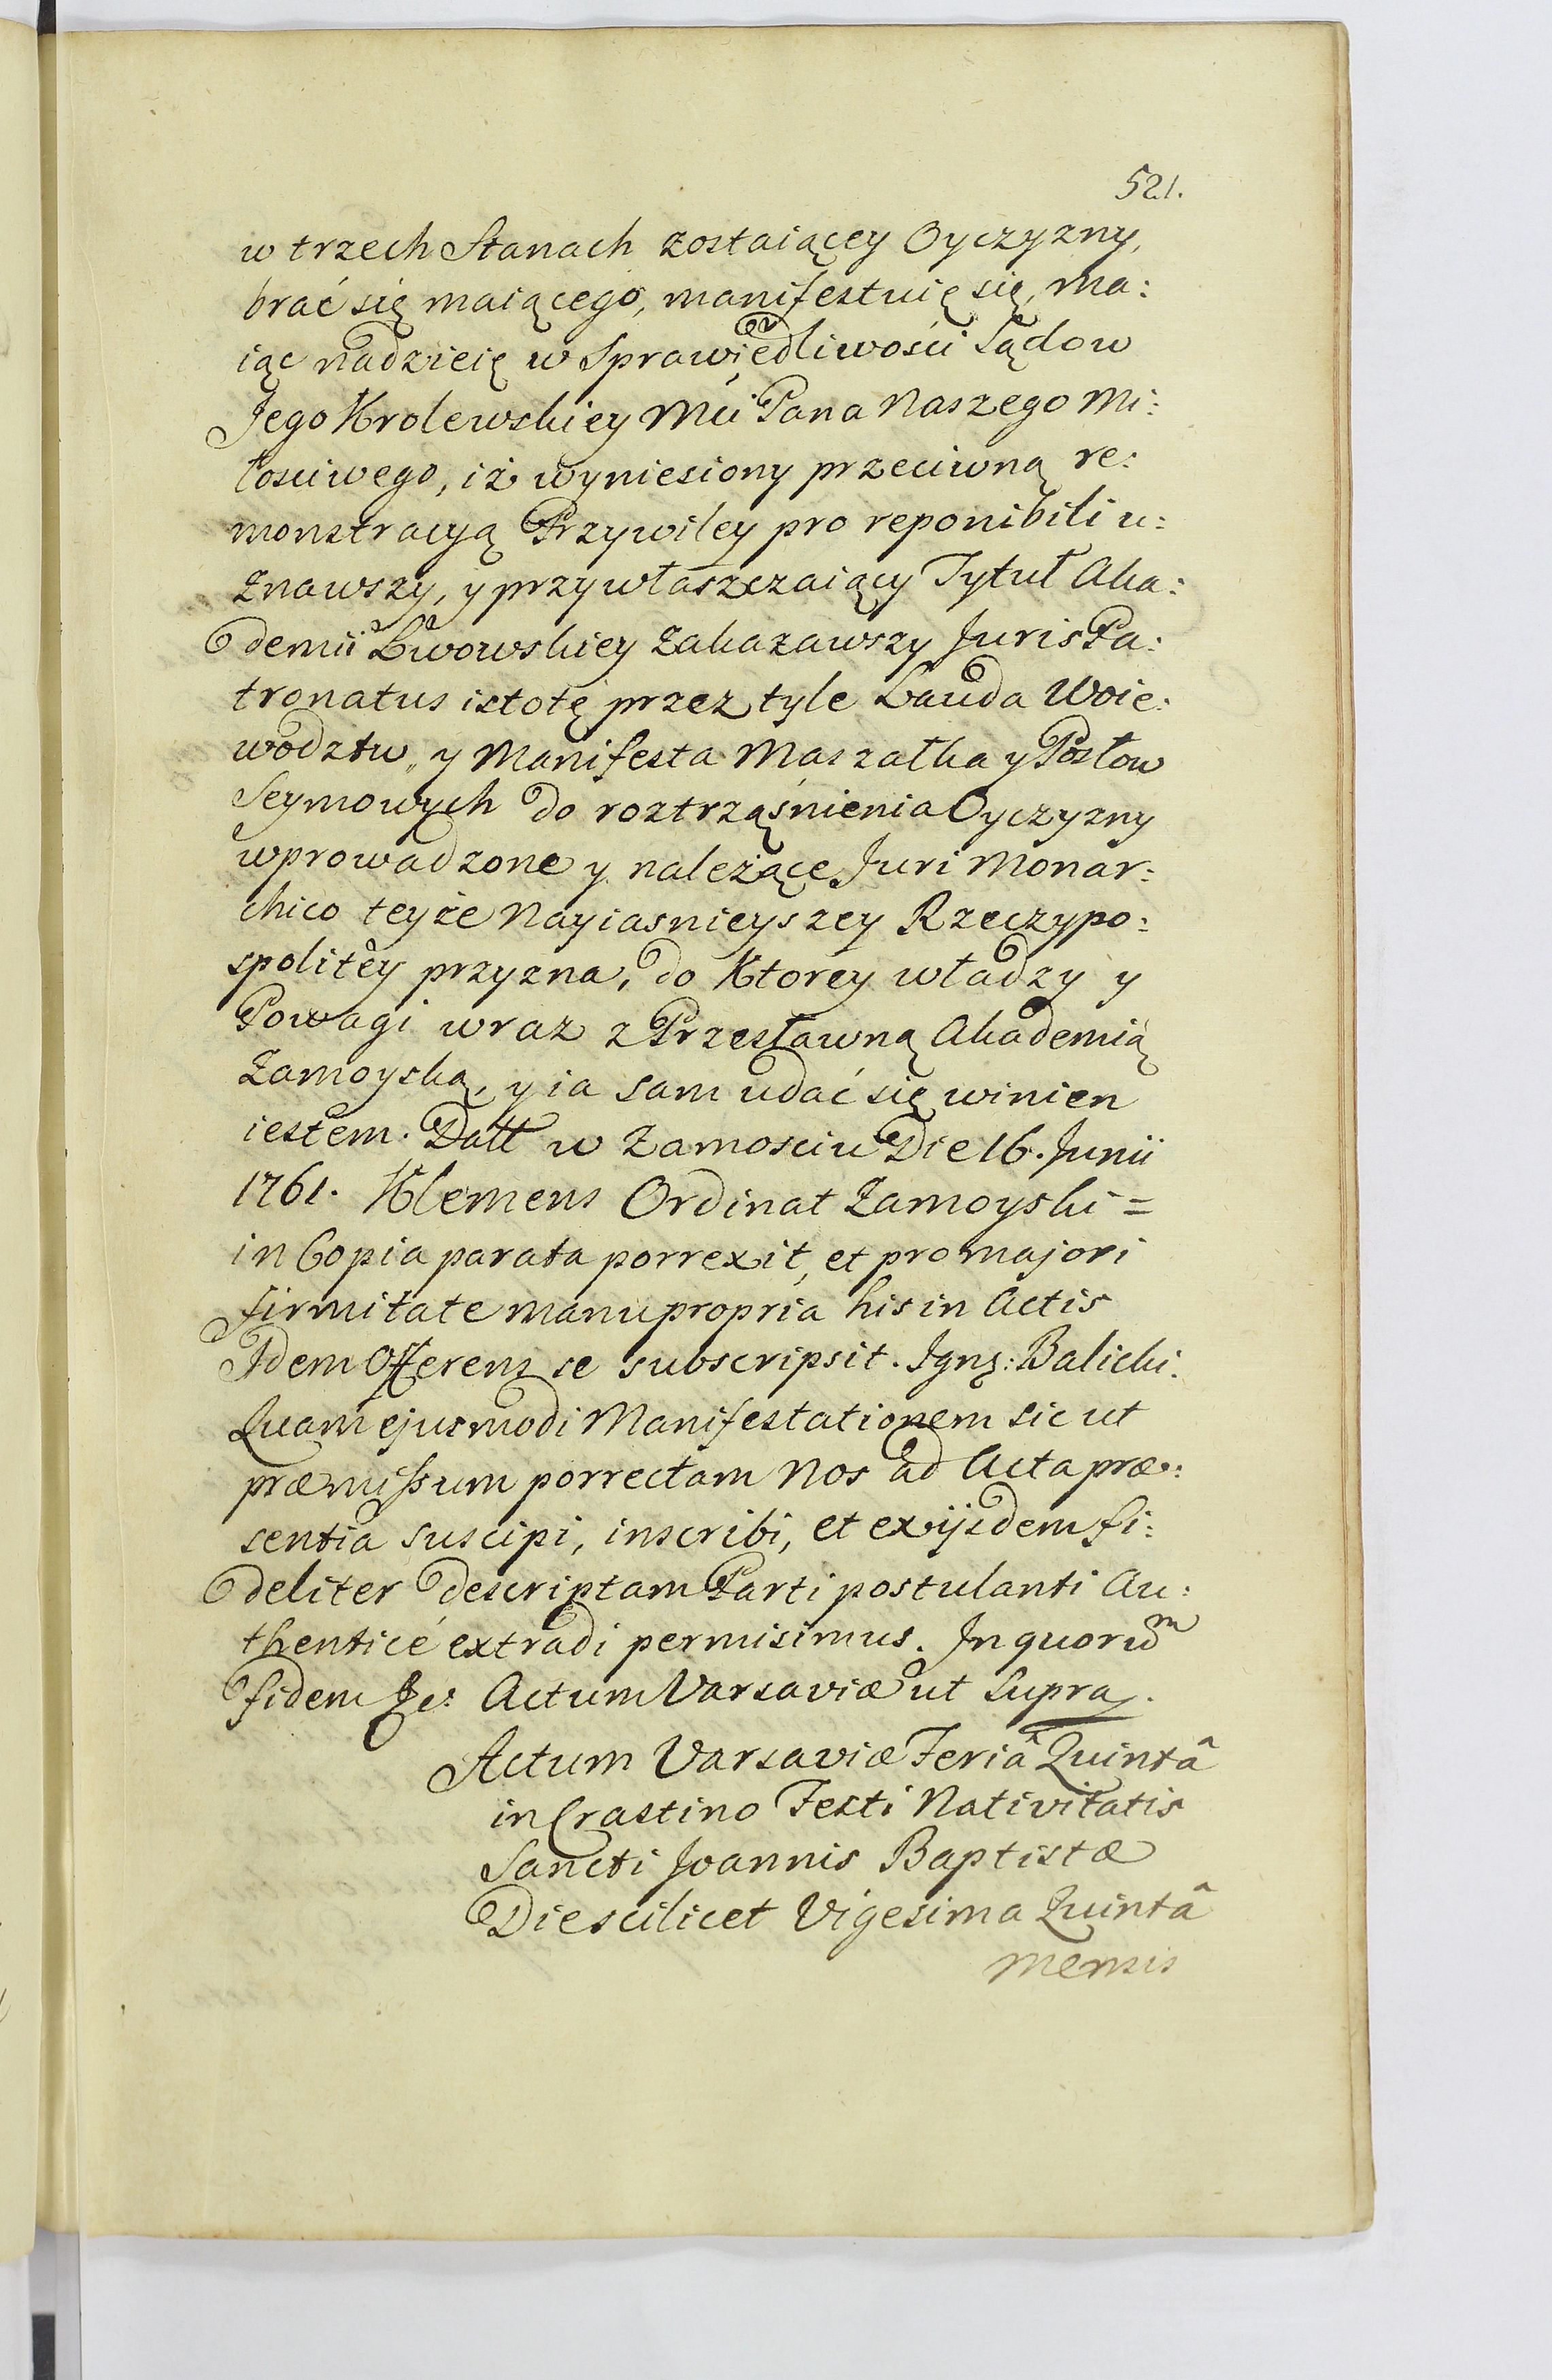 521.
w trzech Stanach zostaiącey Oyczyzny,
brać się maiącego, manifestuię się, ma:
iąc nadzieię w Sprawiedliwości Sądow
Jego Krolewskiey Mci Pana Naszego Mi:
łosciwego, iż wyniesiony przeciwną re:
monstracyą Przywiley pro reponibili u:
znawszy, y przywłaszczaiący Tytuł Aka:
demii Lwowskiey zakazawszy Juris Pa:
tronatus istotę przez tyle Lauda Woie:
wodztw, y Manifesta Maszałka y Posłow
Seymowych do roztrząśnienia Oyczyzny
wprowadzone y należące Juri Monar:
chico teyże Nayiasnieyszey Rzeczypo:
spolitey przyzna, do Ktorey władzy y
Powagi wraz z Przesławną Akademią
Zamoyską, y ia sam udać się winien
iestem. Datt w Zamosciu Die 16. Junii
1761. Klemens Ordinat Zamoyski =
in Copia parata porrexit, et pro majori
firmitate manu propria his in Actis
Idem Offerens se subscripsit. Ign: Balicki.
Quam ejusmodi Manifestationem sic ut
præmissum porrectam Nos ad Acta præ:
sentia suscipi, inscribi, et ex ijsdem fi:
deliter descriptam Parti postulanti Au:
thenticé extradi permisimus. In quorum
fidem &c. Actum Varsaviæ ut Supra.
Actum Varsaviæ Feriâ Quintâ
in Crastino Festi Nativitatis
Sancti Joannis Baptistæ
Die scilicet Vigesima Quintâ
mensis